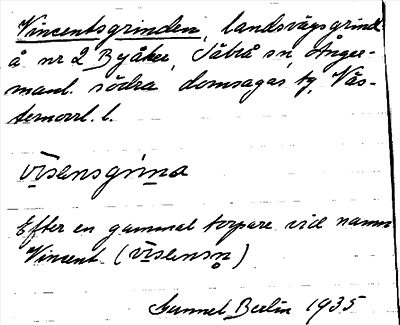 Vincentsgrinden, landsvägsgrind
å nr 2 Byåker, Säbrå sn, Ånger-
manl. södra domsagas tg, Väs-
ternorrl. l.
vīsensgrina
Efter en gammal torpare vid namn
Vincent (vīsensn̥)
Gunnel Berlin 1935